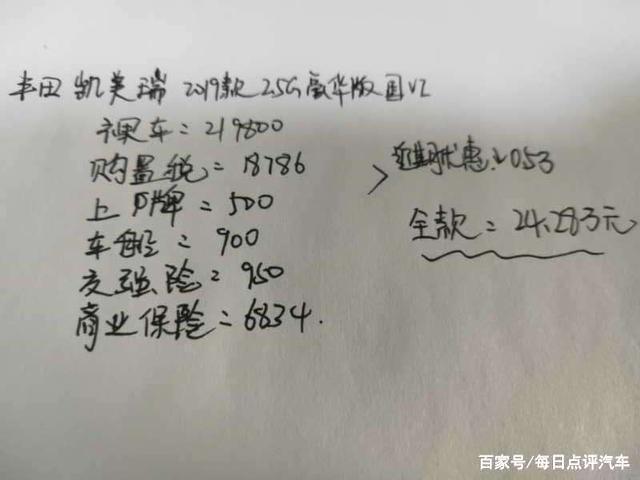 丰田 凯美瑞 2019款 2.5G 豪华版 国VI
裸车=219800
购置税=18786
上户牌=500
车船=900
交强险=950
商业保险=6834.
近期优惠:2.053
全款=24.283元
百家号/每日点评汽车